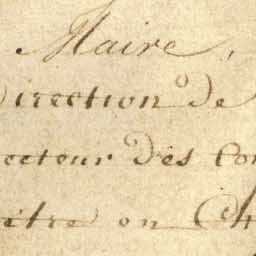 Maire,
Direction de
ecteur des Con
être en Ch